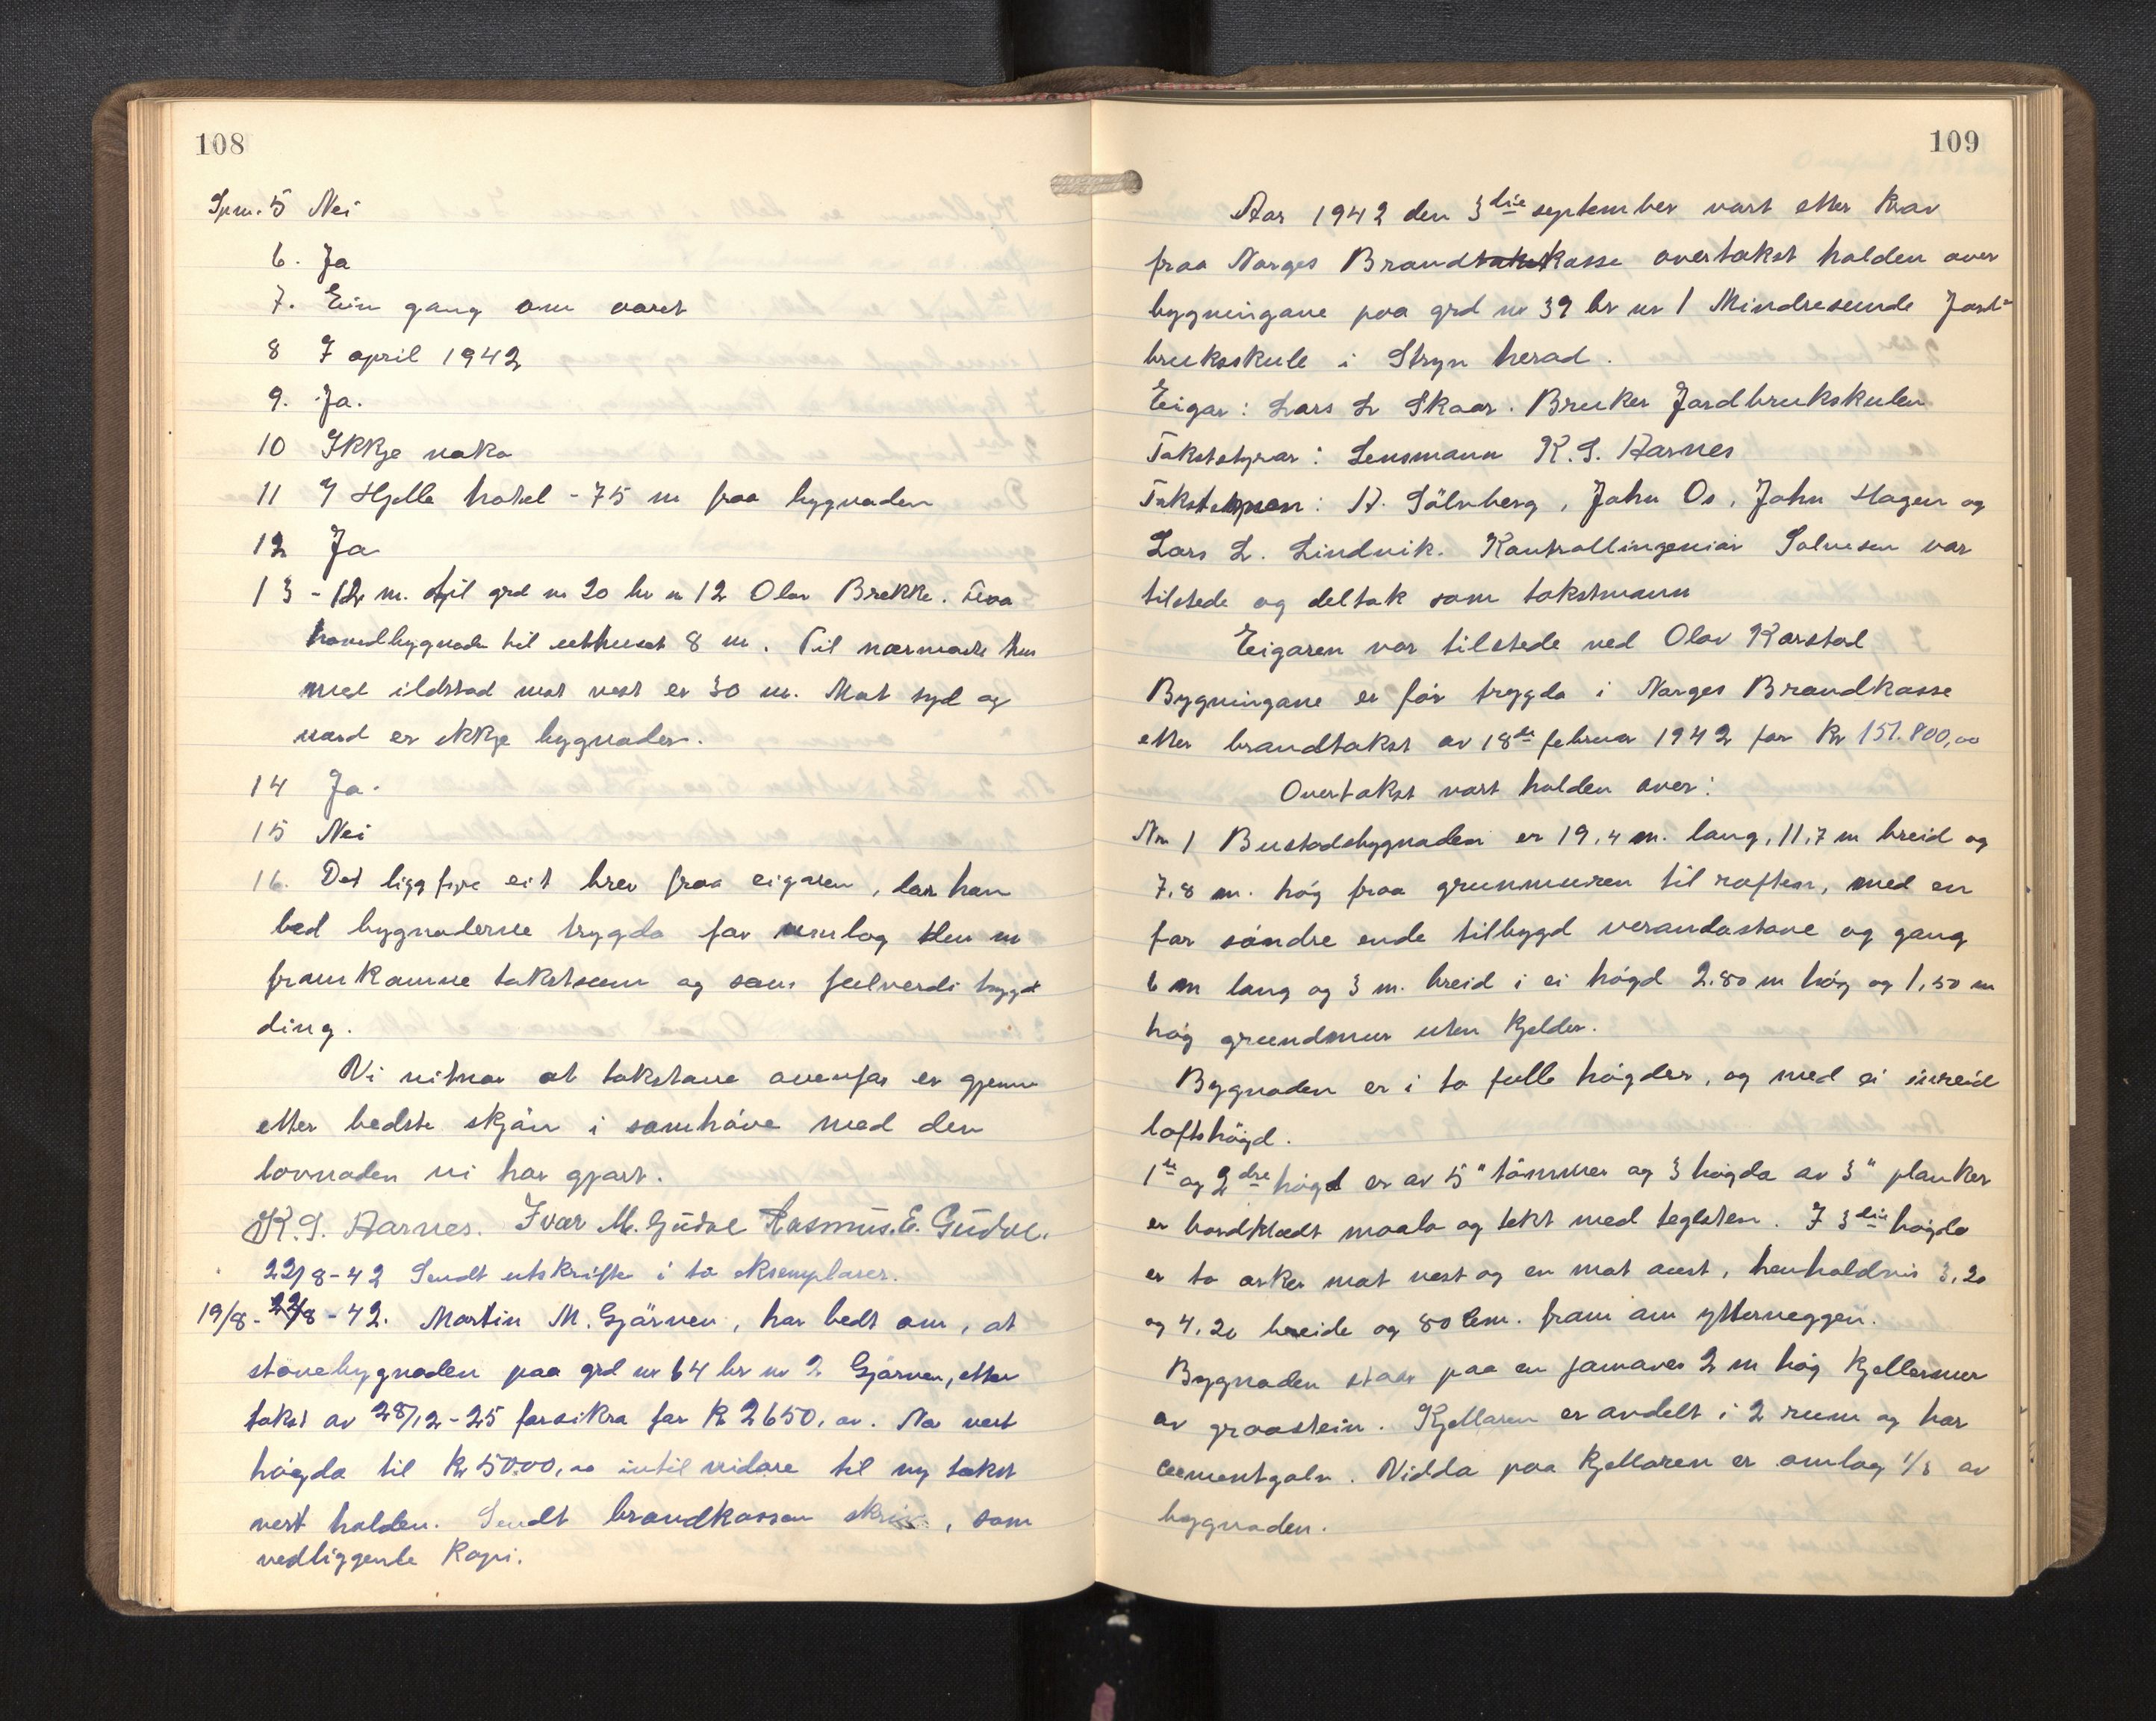 108
Spm. 5 Nei
6. Ja
7. Ein gang om aaret
8 7 april 1942
9. Ja.
10 Ikkje noko
11 I Hjelle hotel - 75 m fraa bygnaden
12 Ja
13 - 12 m. til grd nr 20 br nr 12 Olav Brekke. Fraa
hovedbygnaden til uthuset 8 m. Til nærmaste hus
med ildstad mot vest er 30 m. Mot syd og
nord er ikkje bygnader.
14 Ja.
15 Nei
16. Det ligg fyre eit brev fraa eigaren, der han
bed bygnaderne trygda for den
framkomne takstsum og som fulverdi trygd
ding.
Vi vitnar at takstane ovenfor er gjenne
etter bedste skjön i samhöve med den
lovnaden vi har gjort.
K. S. Aarnes. Ivar M. Gudve Rasmus. E. Gudve.
22/8-42 Sendt utskrifter i to eksemplarer.
19/8-22/8-42. Martin M. Gjörven, har bedt om, at
stovebygnaden paa grd nr 64 br nr 2 Gjörven, etter
takst av 28/12-25 forsikra for kr 2650,oo. No vert
högda til kr 5000,oo intil vidare til ny takst
vert halden. Sendt brandkassen skriv, som
vedliggende kopi.
109
Aar 1942 den 3die september vart etter krav
fraa Norges Brandtakstkasse overtakst halden over
bygningane paa grd nr 39 br nr 1 Mindresunde Jord-
bruksskule i Stryn herad.
Eigar: Lars L Skaar. Bruker Jordbrukskulen
Takststyrar: Lensmann K. S. Aarnes
Takstmenn: A. Sölvberg, John Os, John Hagen og
Lars L. Lindvik. Kontrollingeniör Salvesen var
tilstede og deltok som takstmann
Eigaren var tilstede ved Olav Karstad
Bygningane er för trygda i Norges Brandkasse
etter brandtakst av 18de februar 1942 for kr 151.800,oo
Overtakst vart halden over:
Nr 1 Bustadsbygnaden er 19,4 m. lang, 11,7 m breid og
7,8 m. hög fraa grunmuren til raften, med en
for söndre ende tilbygd verandastove og gang
6 m lang og 3 m. breid i ei högd 2.80 m hög og 1,50 m
hög grundmur uten kjelder.
Bygnaden er i to fulle högder, og med ei inreid
loftshögd.
1ste og 2dre högd er av 5" tömmer og 3 högda av 3" planker
er bordklædt maala og tekt med teglsten. I 3die högda
er to arker mot vest og en mot aust, henholdvis 3,20
og 4,20 breide og 80 Cm. fram om ytterveggen.
Bygnaden staar paa en jamaver 2 m hög kjellermur
av graastein. Kjellaren er avdelt i 2 rum og har
cementgolv. Vidda paa kjellaren er omlag 1/3 av
bygnaden.